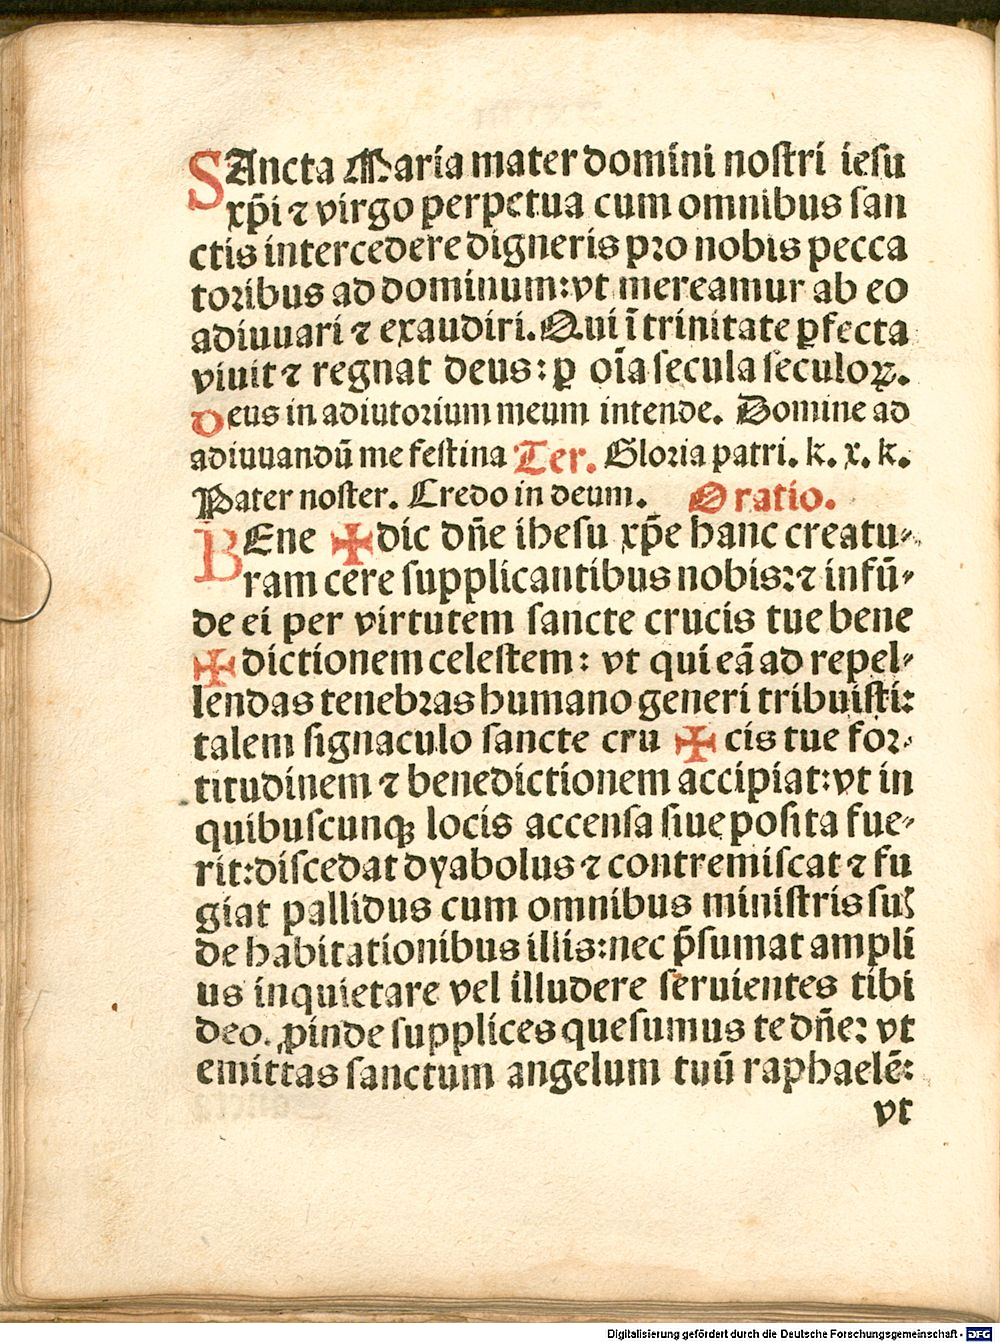 SAncta Maria mater domini noſtri ieſu
xp̄i ⁊ virgo perpetua cum omnibus ſan
ctis intercedere digneris pꝛo nobis pecca
toꝛibus ad dominum:vt mereamur ab eo
adiuuari ⁊ exaudiri. Qui ī trinitate ꝑfecta
viuit ⁊ regnat deus: ꝑ oīa ſecula ſeculoꝝ.
Deus in adiutoꝛium meum intende. Domine ad
adiuuandū me feſtina Ter. Gloꝛia patri. k. x. k.
Pater noſter. Credo in deum. Oratio.
BEne ✠ dic dn̄e iheſu xp̄e hanc creatu⸗
ram cere ſupplicantibus nobis:⁊ infū⸗
de ei per virtutem ſancte crucis tue bene
✠ dictionem celeſtem: vt qui eā ad repel⸗
lendas tenebꝛas humano generi tribuiſti:
talem ſignaculo ſancte cru ✠ cis tue foꝛ⸗
titudinem ⁊ benedictionem accipiat:vt in
quibuſcunqꝫ locis accenſa ſiue poſita fue⸗
rit:diſcedat dyabolus ⁊ contremiſcat ⁊ fu
giat pallidus cum omnibus miniſtris ſuꝭ
de habitationibus illis:nec p̄ſumat ampli
us inquietare vel illudere ſeruientes tibi
deo. ꝓinde ſupplices queſumus te dn̄e: vt
emittas ſanctum angelum tuū raphaelē:
vt
Digitalisierung gefördert durch die Deutsche Forschungsgemeinschaft - DFG